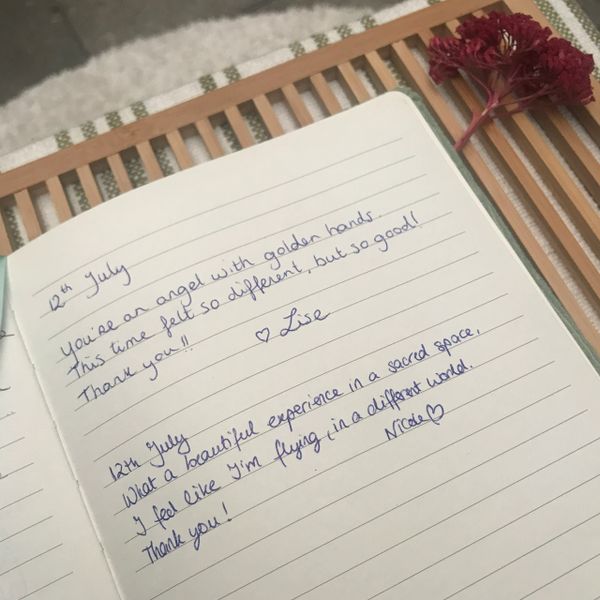 12th July
You're an angel with golden hands.
This time felt so different, but so good!
Thank you!!
♡ Lise
12th July
What a beautiful experience in a sacred space,
I feel like I'm flying, in a different world.
Nicole ♡
Thank you!